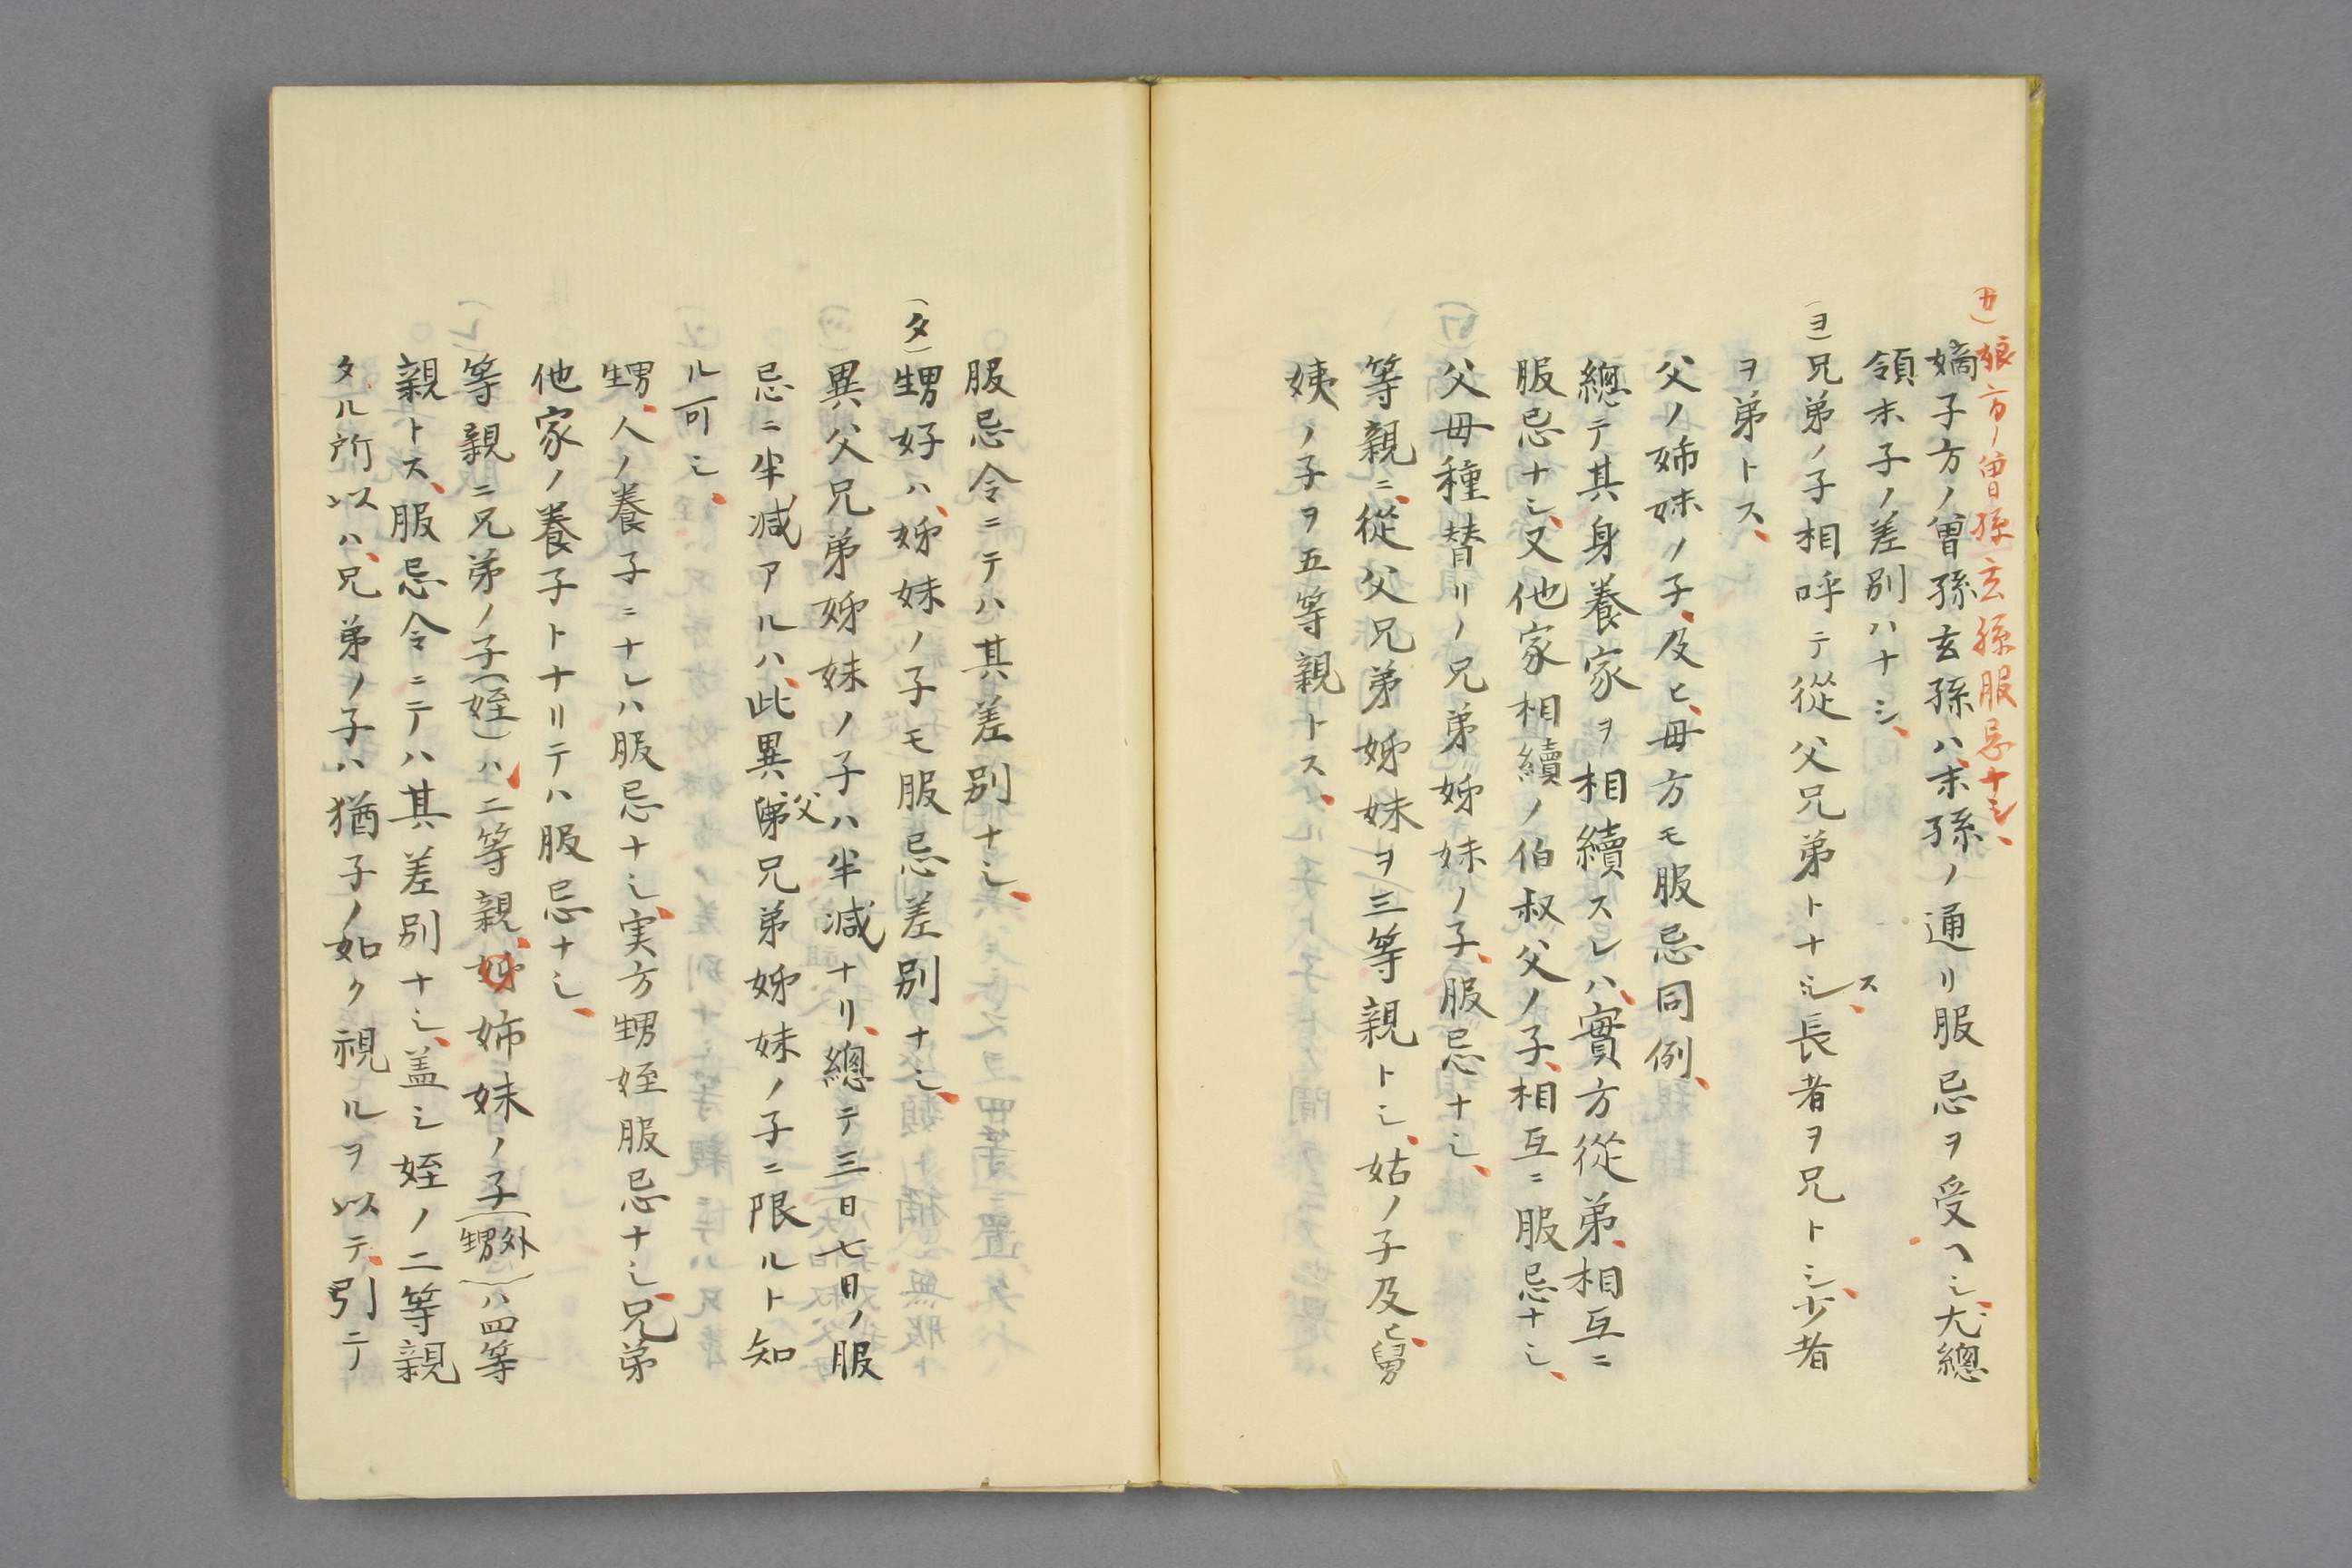 (カ)娘方ノ曽孫玄孫服忌ナシ、
嫡子方ノ曽孫玄孫ハ、末孫ノ通リ服忌ヲ受ヘシ、尤總
領末子ノ差別ハナシ、
(ヨ)兄弟ノ子相呼テ從父兄弟トナス、長者ヲ兄トシ、少者
ヲ弟トス、
父ノ姉妹ノ子、及ヒ、母方モ服忌同例、
總テ其身養家ヲ相續スレハ、實方從弟、相互ニ
服忌ナシ、又他家相續ノ伯叔父ノ子、相互ニ服忌ナシ、
父母種替リノ兄弟姊妹ノ子、服忌ナシ、
等親ニ、從父兄弟姊妹ヲ三等親トシ、姑ノ子及ヒ、舅
姨ノ子ヲ五等親トス、
服忌令ニテハ其差別ナシ、
(タ)甥姪ハ、姊妹ノ子モ服忌差別ナシ、
異父兄弟姊妹ノ子ハ半減ナリ、總テ三日七日ノ服
忌ニ半減アルハ、此異父兄弟姊妹ノ子ニ限ルト知
ル可シ、
甥、人ノ養子ニナレハ服忌ナシ、実方甥姪服忌ナシ、兄弟
他家ノ養子トナリテハ服忌ナシ、
等親ニ兄弟ノ子(姪)ハ、二等親、姉妹ノ子(外甥)ハ四等
親トス、服忌令ニテハ其差別ナシ、盖シ姪ノ二等親
タル所以ハ、兄弟ノ子ハ猶子ノ如ク視ルヲ以テ、引テ